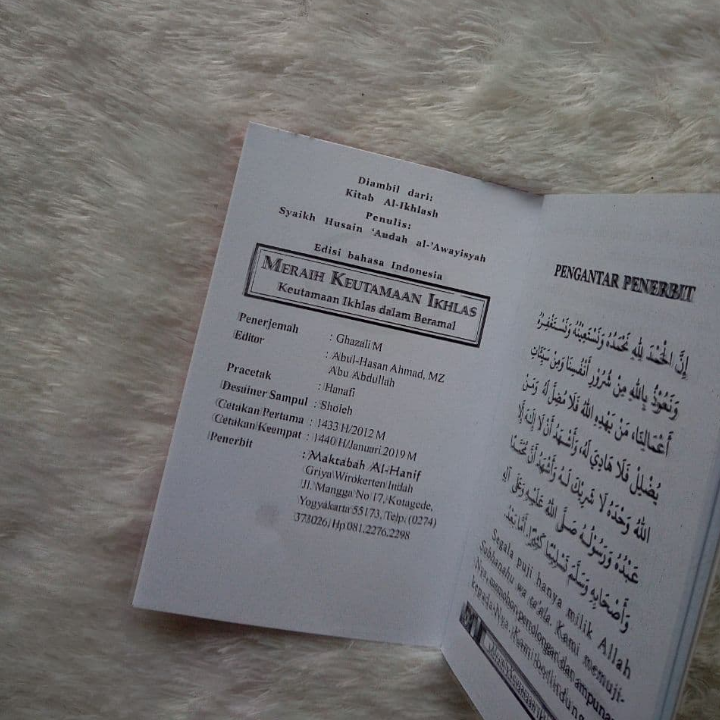 Diambil dari:
Kitab Al-Ikhlash
Penulis:
Syaikh Husain 'Audah al-'Awayisyah
Edisi bahasa Indonesia
MERAIH KEUTAMAAN IKHLAS
Keutamaan Ikhlas dalam Beramal
Penerjemah : Ghazali M
Editor : Abul-Hasan Ahmad, MZ
Abu Abdullah
Pracetak : Hanafi
Desainer Sampul : Sholeh
Cetakan Pertama : 1433 H/2012 M
Cetakan Keempat : 1440 H/Januari 2019 M
Penerbit : Maktabah Al-Hanif
Griya Wirokerten Indah
Jl. Mangga No 17, Kotagede,
Yogyakarta 55173, Telp. (0274)
373026/ Hp 081.2276.2298
PENGANTAR PENERBIT
إِنَّ الْحَمْدَ لِلَّهِ نَحْمَدُهُ وَنَسْتَعِيْنُهُ وَنَسْتَغْفِرُهُ
وَنَعُوْذُ بِاللهِ مِنْ شُرُوْرِ أَنْفُسِنَا وَمِنْ سَيِّئَاتِ
أَعْمَالِنَا، مَنْ يَهْدِهِ اللهُ فَلَا مُضِلَّ لَهُ وَمَنْ
يُضْلِلْ فَلَا هَادِيَ لَهُ، وَأَشْهَدُ أَنْ لَا إِلَهَ إِلَّا
اللهُ وَحْدَهُ لَا شَرِيْكَ لَهُ وَأَشْهَدُ أَنَّ مُحَمَّدًا
عَبْدُهُ وَرَسُوْلُهُ صَلَّى اللهُ عَلَيْهِ وَعَلَى آلِهِ
وَأَصْحَابِهِ وَسَلَّمَ تَسْلِيْمًا كَثِيْرًا، أَمَّا بَعْدُ:
Segala puji hanya milik Allah
Subhanahu wa ta'ala. Kami memuji-
Nya, memohon pertolongan dan ampunan
kepada-Nya. Kami berlindung